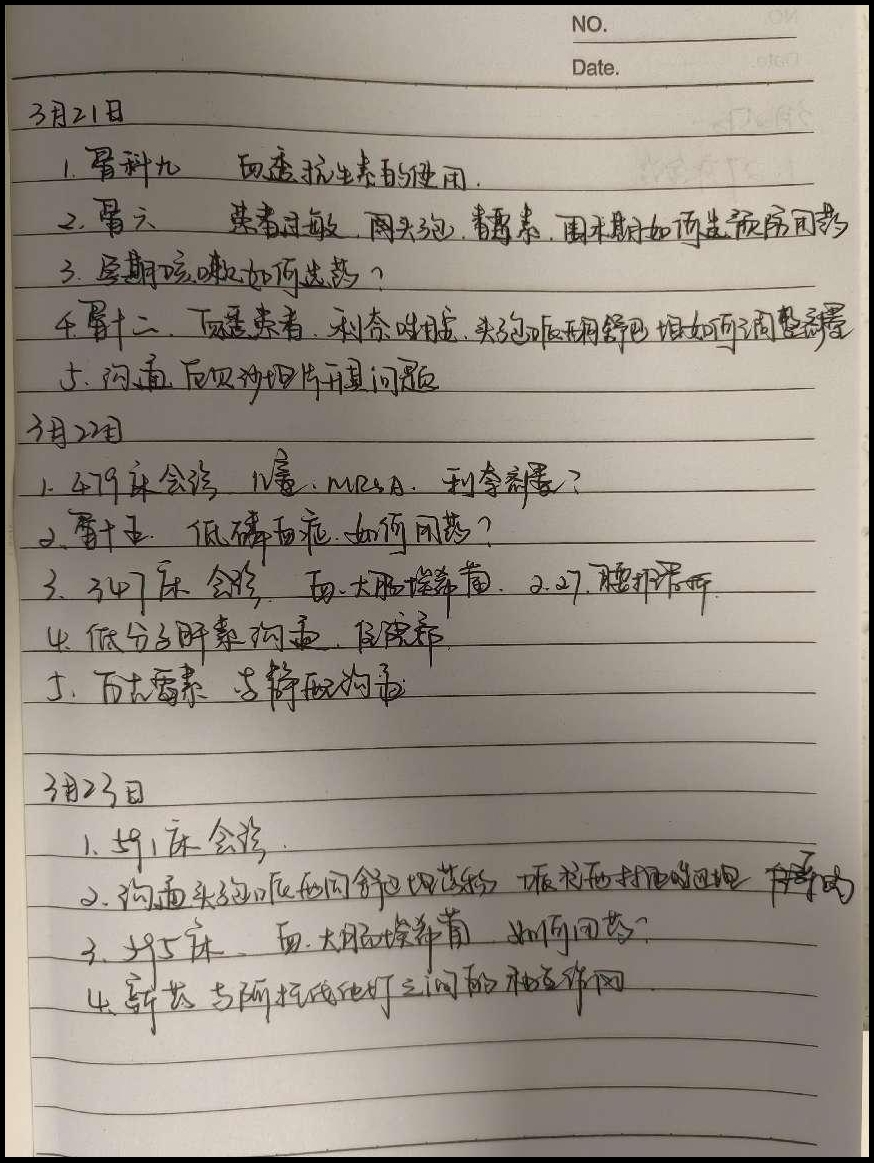 NO.
Date.
3月21日
1. 骨科九 血透抗生素的使用.
2. 骨六 患者过敏. 阿头孢. 青霉素. 围术期如何选预防用药
3. 孕期咳嗽如何选药?
4. 骨十二. 血透患者. 利奈唑胺. 头孢哌酮舒巴坦如何调整剂量
5. 沟通 厄贝沙坦片开具问题
3月22日
1. 479床会诊 儿童. MRSA. 利奈剂量?
2. 骨十五. 低磷血症. 如何用药?
3. 347床 会诊. 血. 大肠埃希菌. 2.27.
4. 低分子肝素沟通. 住院部
5. 万古霉素 与静配沟通
3月23日
1. 591床 会诊.
2. 沟通头孢哌酮舒巴坦
3. 595床. 血. 大肠埃希菌. 如何用药?
4. 新药 与阿托伐他汀之间的相互作用